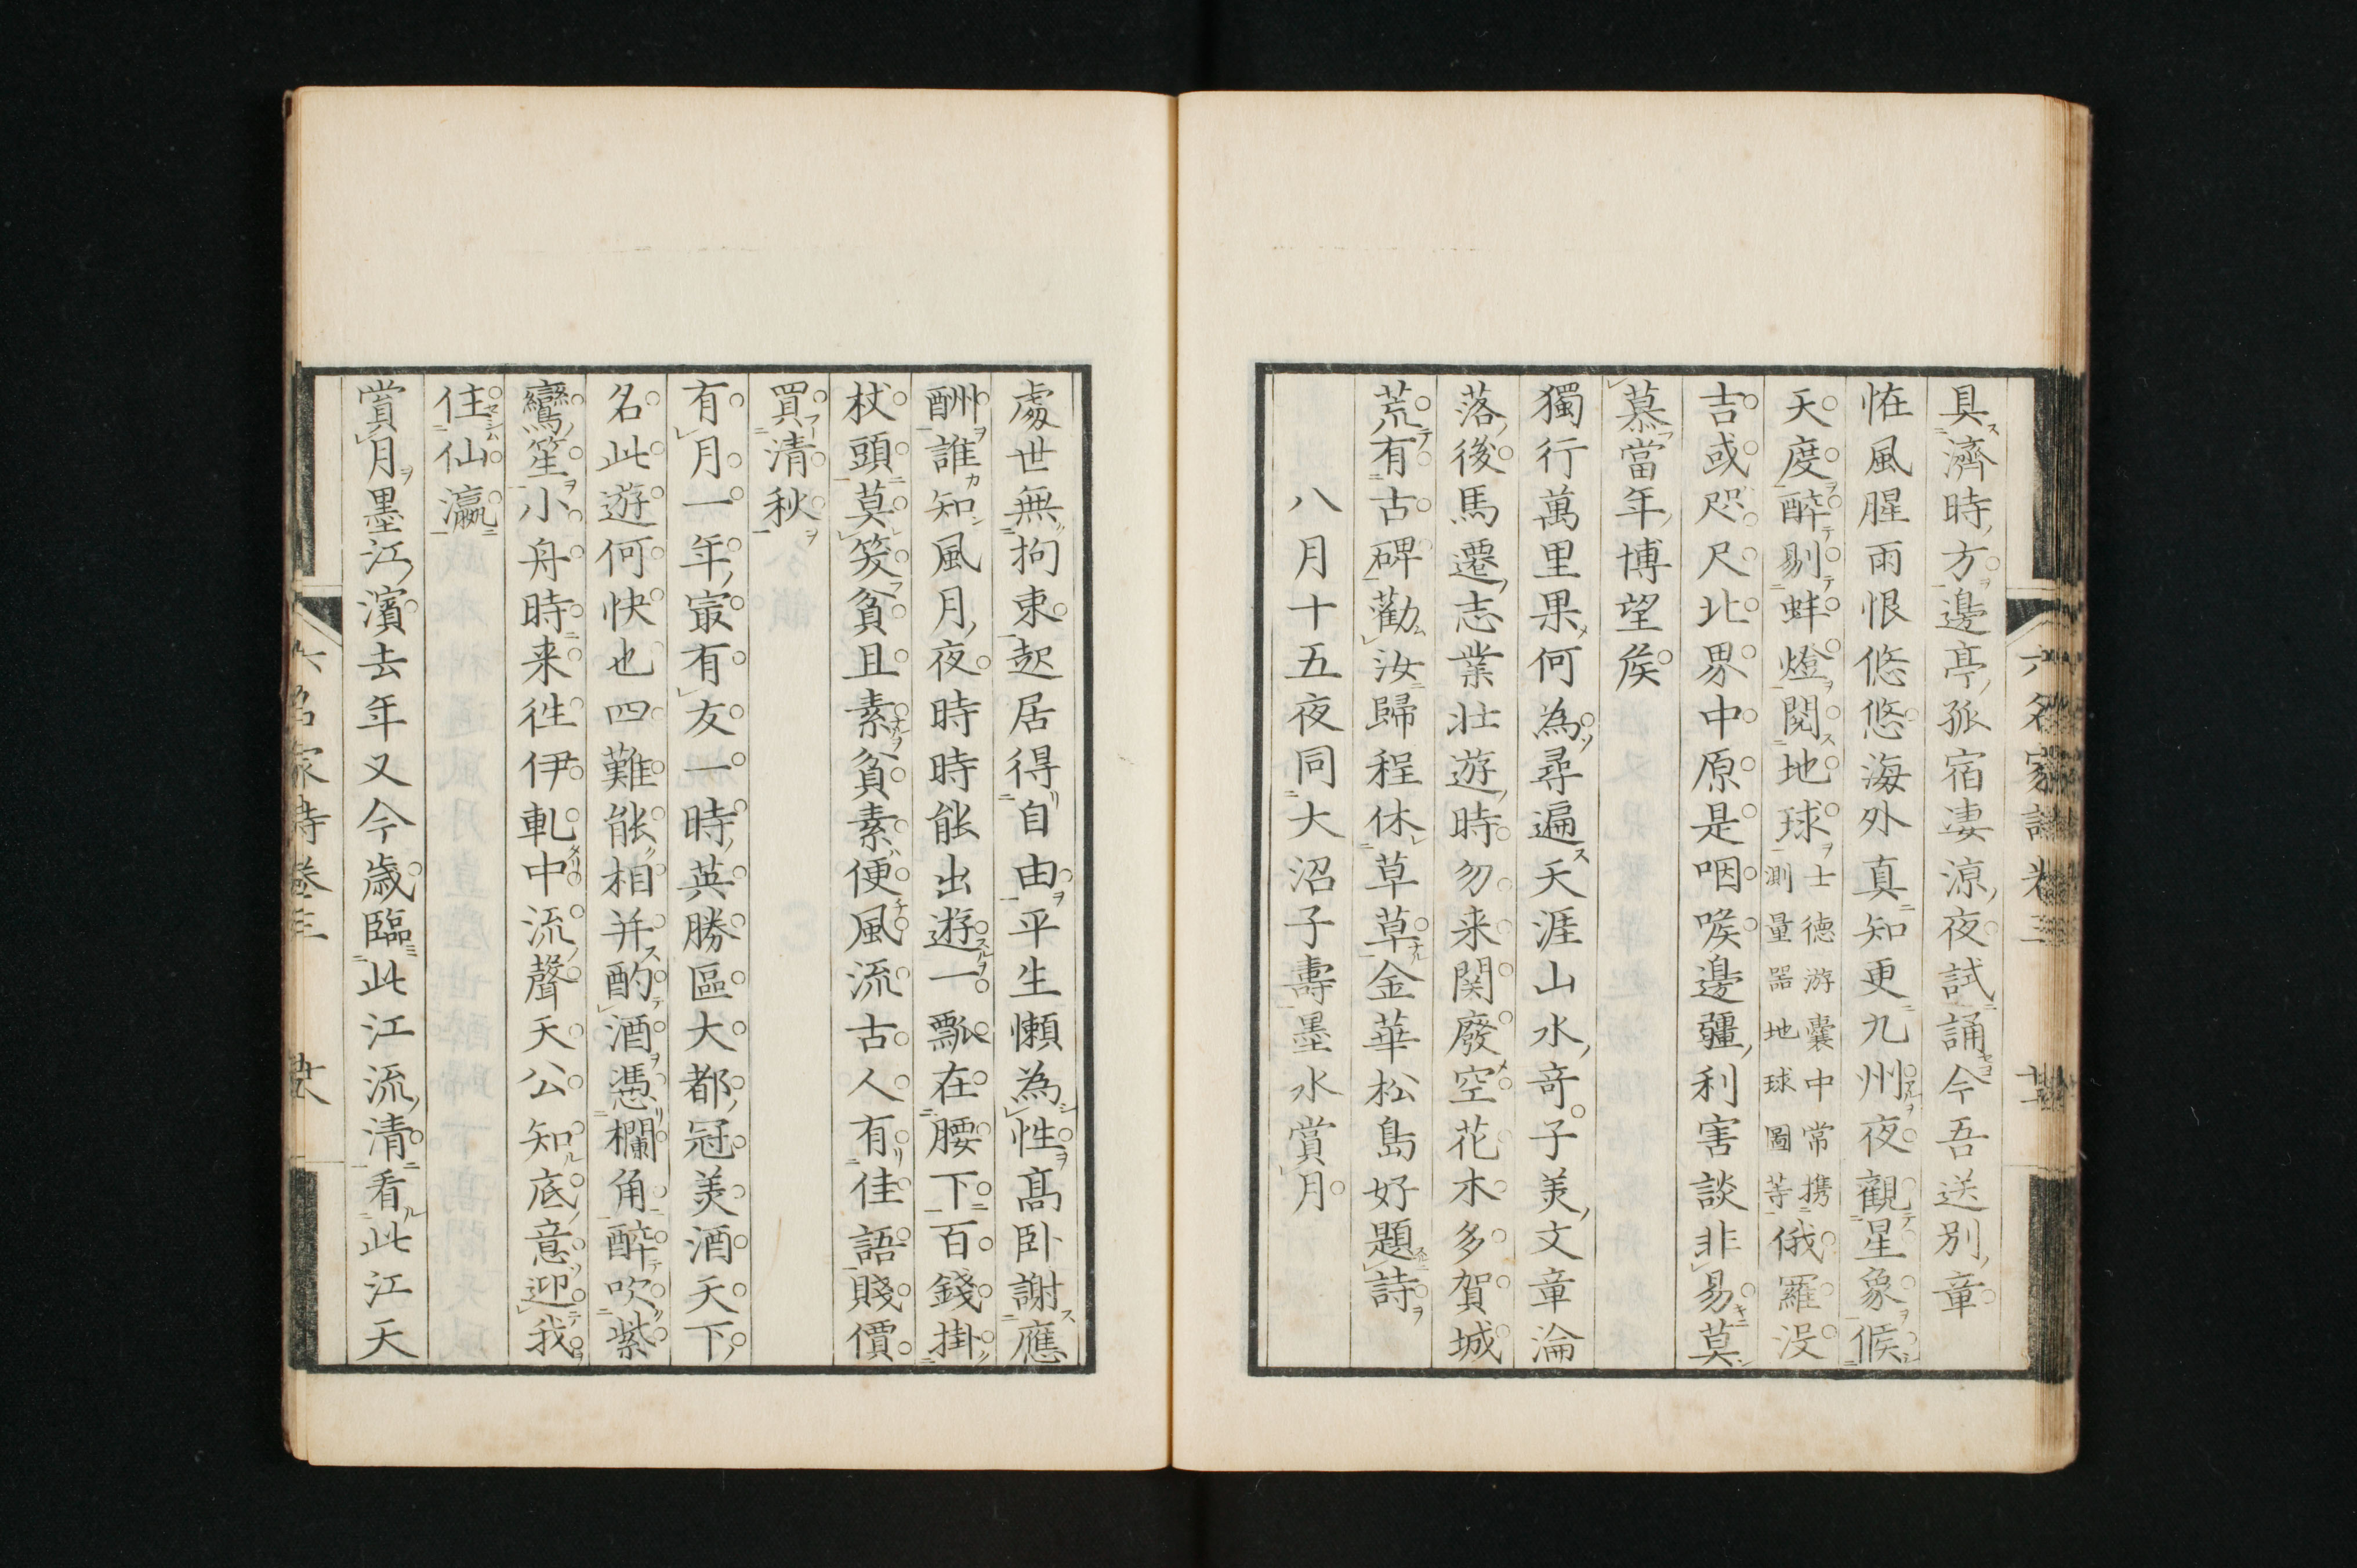 具濟時方邊亭孤宿凄涼夜試誦今吾送別章
恠風腥雨恨悠悠海外真知更九州夜觀星象候
天度醉剔蚌燈閲地球士德游囊中常携
測量器地球圖等俄羅没
吉或咫尺北界中原是咽喉邊疆利害談非易莫
慕當年博望矦
獨行萬里果何為尋遍天涯山水奇子美文章淪
落後馬遷志業壮遊時勿来関廢空花木多賀城
荒有古碑勸汝歸程休草草金華松島好題詩
八月十五夜同大沼子壽墨水賞月
處世無拘束起居得自由平生懶為性髙卧謝應
酬誰知風月夜時時能出遊一瓢在腰下百錢掛
杖頭莫笑貧且素貧素便風流古人有佳語賤價
買清秋
有月一年㝡有友一時英勝區大都冠美酒天下
名此遊何快也四難能相并酌酒憑欄角醉吹紫
鸞笙小舟時来徃伊軋中流聲天公知底意迎我
住仙瀛
賞月墨江濱去年又今歳臨此江流清看此江天